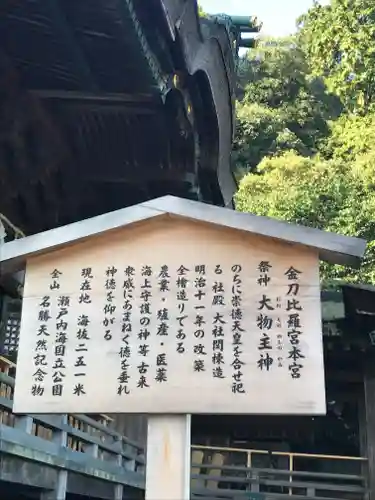 金刀比羅宮本宮
祭神 大物主神
のちに崇徳天皇を合せ祀
る社殿 大社関棟造
明治十一年の改築
全檜造りである
農業・殖産・医薬
海上守護の神等古来
衆庶にあまねく徳を垂れ
神徳を仰がる
現在地 海抜二五一米
全山 瀬戸内海国立公園
名勝天然記念物